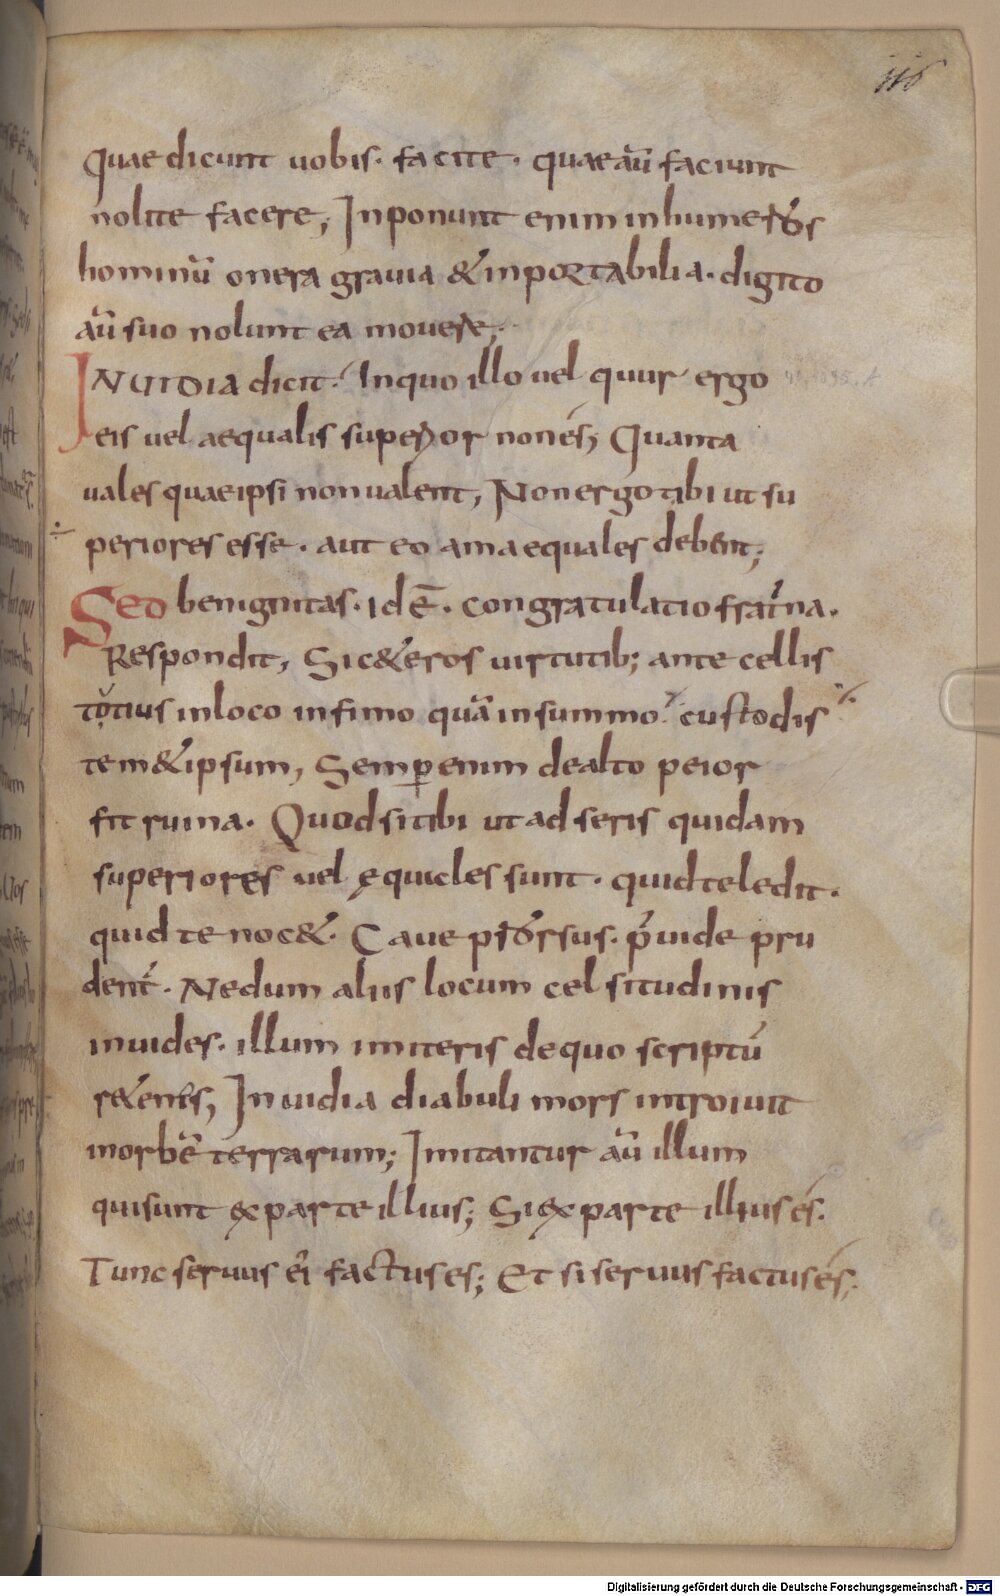 116
quae dicunt uobis. facite. quae aū faciunt
nolite facere; Inponunt enim in humeros
hominū onera grauia & inportabilia. digito
aū suo nolunt ea mouere;
INUIDIA dicit. In quo illo uel quur ergo
eis uel aequalis superior non és; Quanta
uales quae ipsi non ualent; Non ergo tibi ut su
periores esse. aut eo am aequales debent;
Sed benignitas. id ē. congratulatio frat̄na.
Respondit, Sic & eros uirtutib; ante cellis
totius in loco infimo quā in summo custodis
tem & ipsum, Semp enim de alto peior
fit ruina. Quod si tibi ut ad seris quidam
superiores uel ęquicles sunt. quid te ledit.
quid te noc&. Caue prorsus. p̄uide pru
dent̄. Ne dum aliis locum celsitudinis
inuides. illum imiteris de quo scriptū
r&enes; Inuidia diabuli mors introiuit
inorbē terrarum; Imitantur aū illum
qui sunt ex parte illius; Si ex parte illius és.
Tunc seruus ei factus es; Et si seruus factus és;
Digitalisierung gefördert durch die Deutsche Forschungsgemeinschaft - DFG